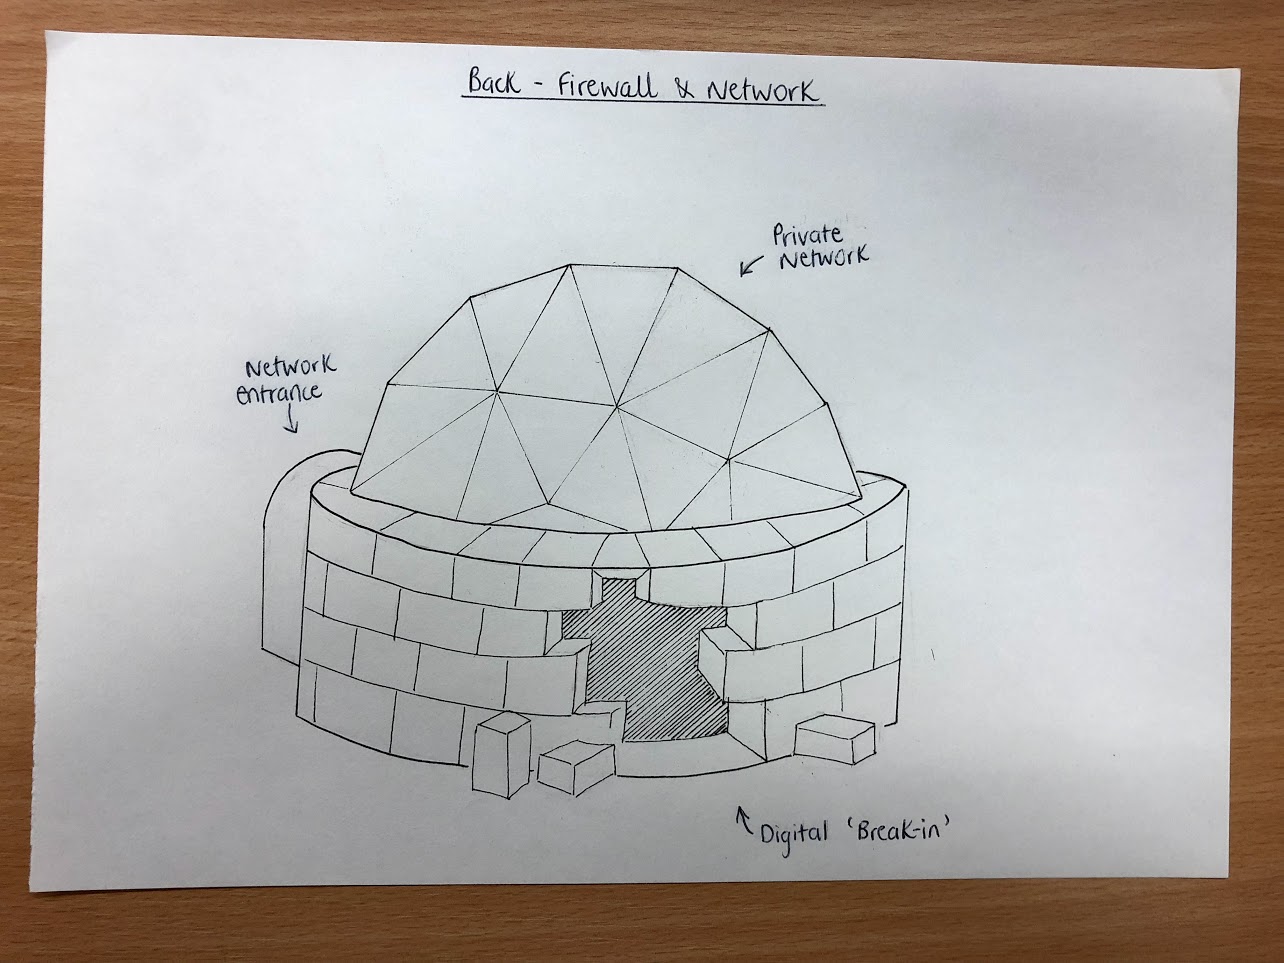 Back - Firewall & Network
Private
Network
Network
entrance
Digital 'Break-in'